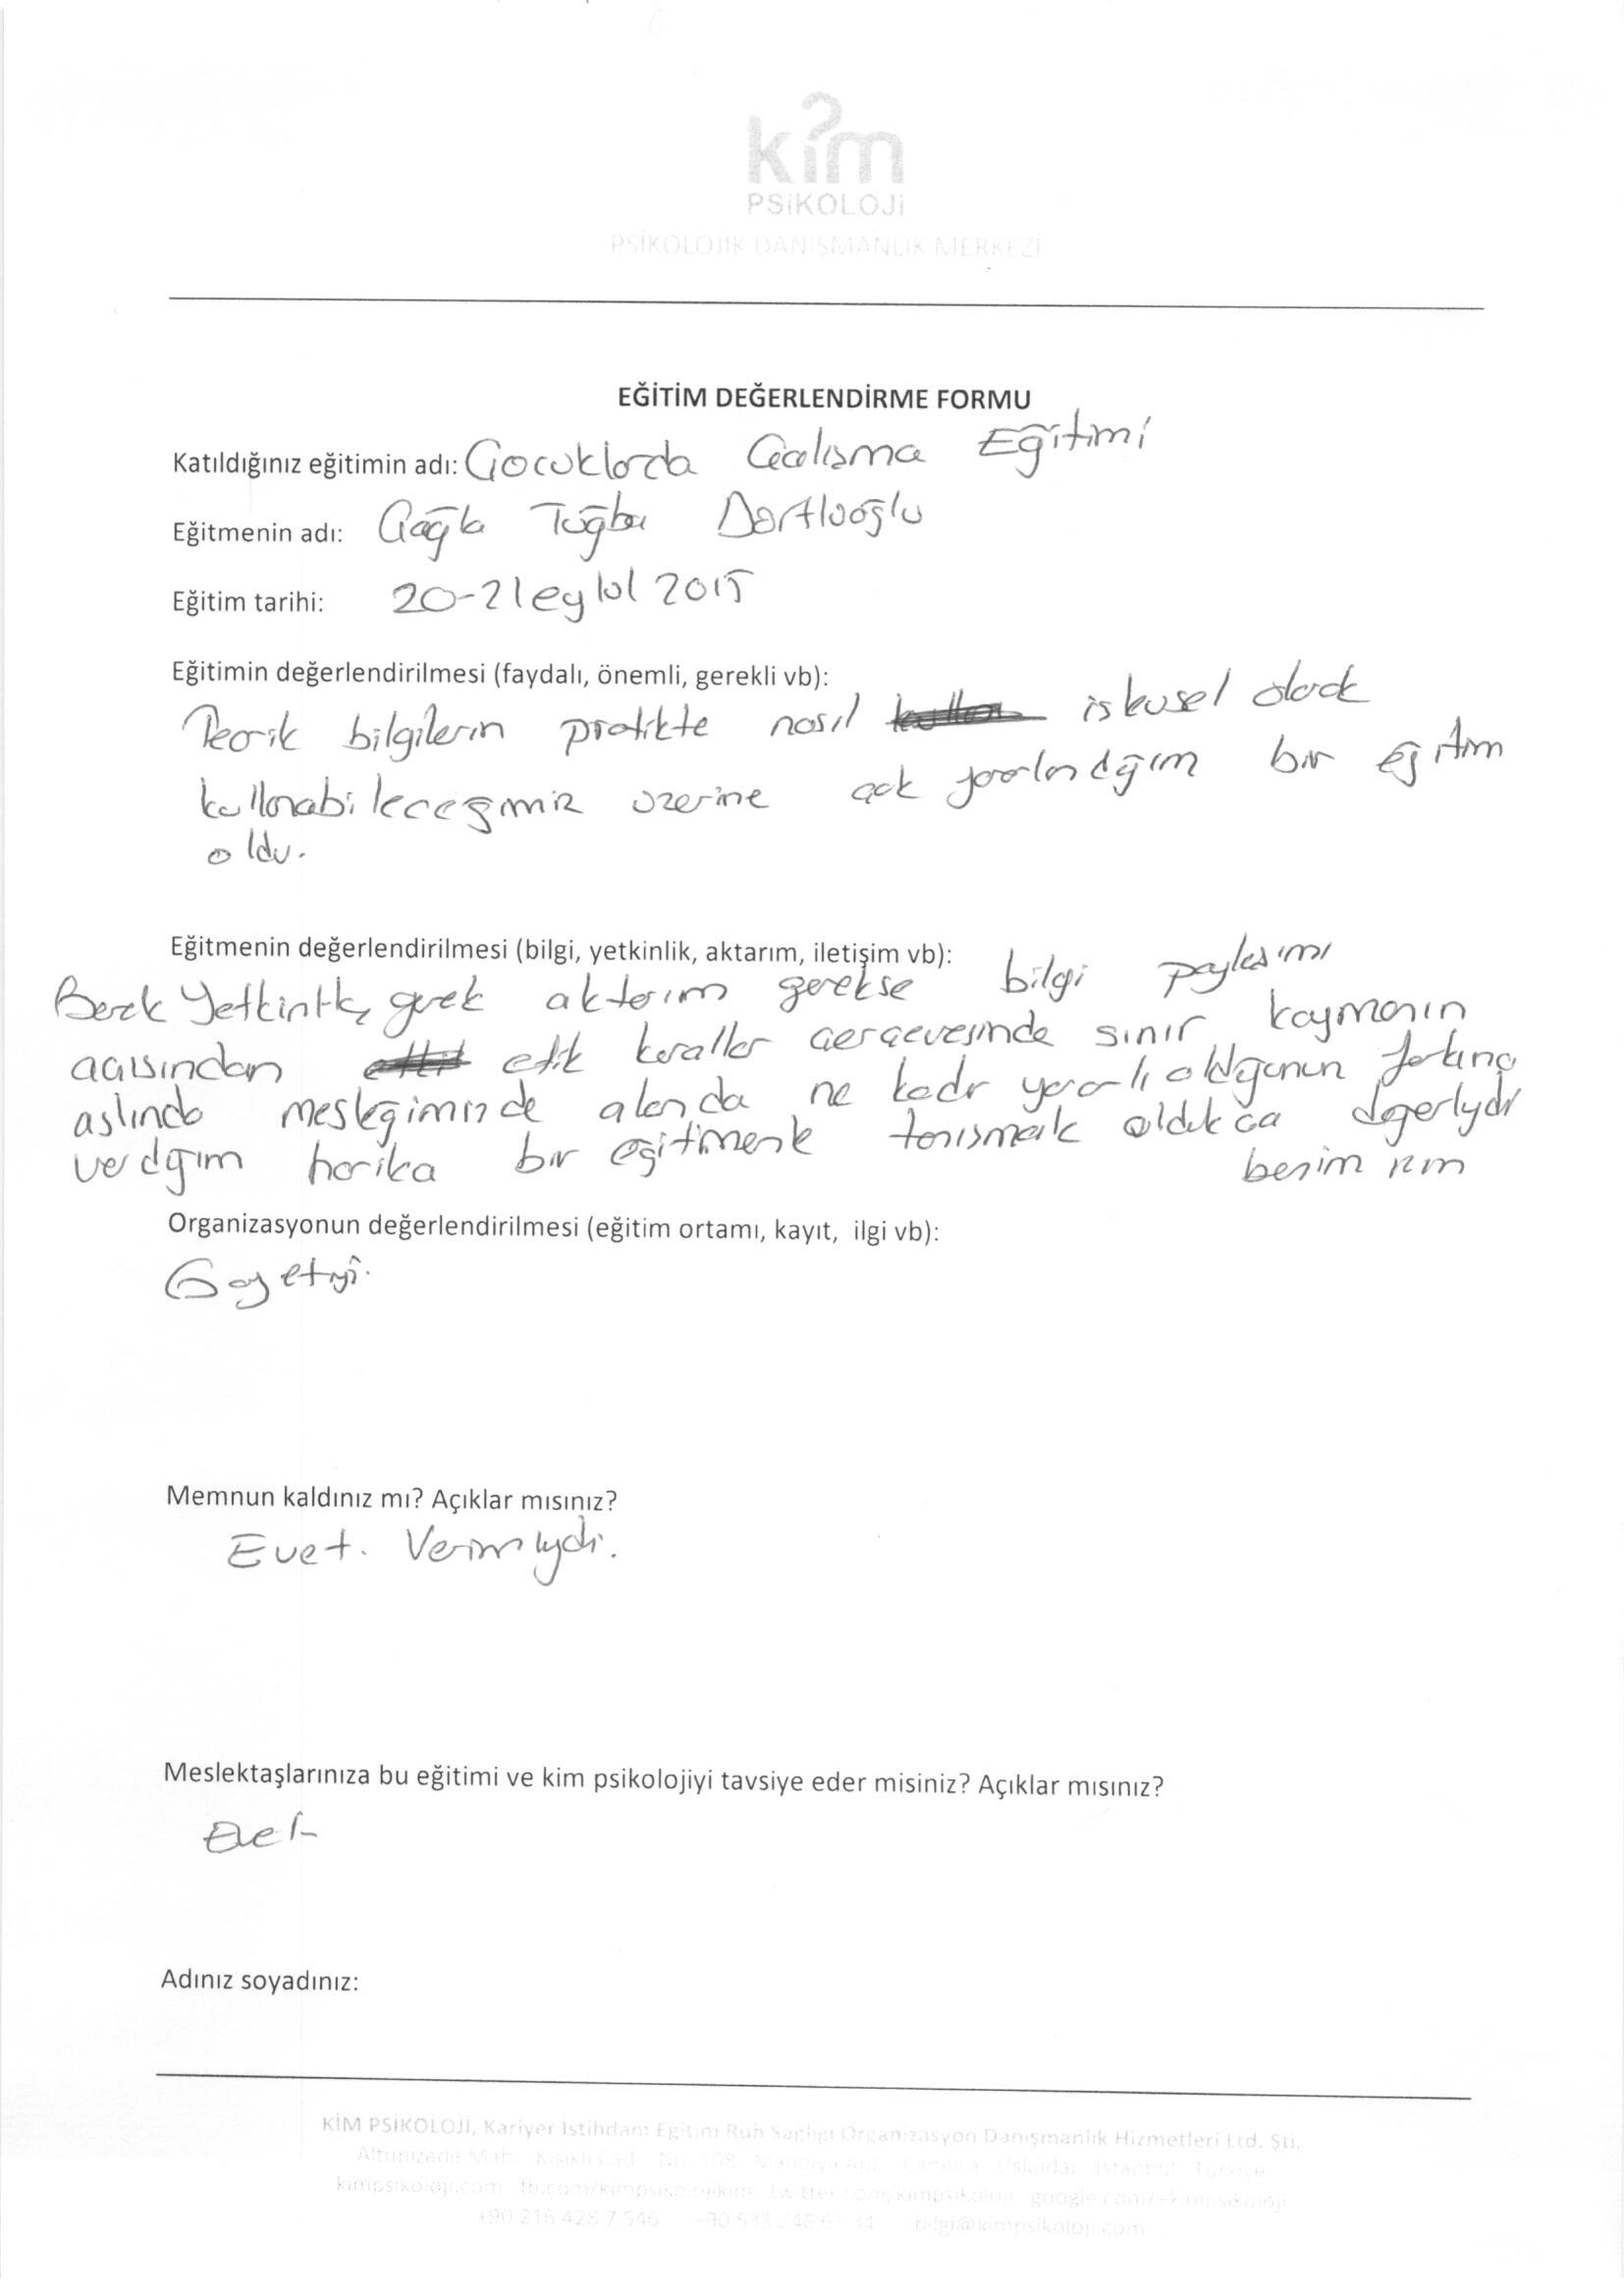 kim
PSiKOLOJi
PSİKOLOJİK DANIŞMANLIK MERKEZİ
EĞİTİM DEĞERLENDİRME FORMU
Katıldığınız eğitimin adı: Çocuklarda Çalışma Eğitimi
Eğitmenin adı: Çağla Tuğba Dortluoğlu
Eğitim tarihi: 20-21 eylül 2015
Eğitimin değerlendirilmesi (faydalı, önemli, gerekli vb):
Teorik bilgilerin pratikte nasıl işlevsel olarak
kullanabileceğimiz üzerine çok yararlandığım bir eğitim
oldu.
Eğitmenin değerlendirilmesi (bilgi, yetkinlik, aktarım, iletişim vb):
Gerek Yetkinlik, gerek aktarım gerekse bilgi paylaşımı
açısından etik kurallar çerçevesinde sınır koymanın
aslında mesleğimizde alanda ne kadar yararlı olduğunun farkına
verdiğim harika bir eğitmenle tanışmak oldukça değerliydi
benim için
Organizasyonun değerlendirilmesi (eğitim ortamı, kayıt, ilgi vb):
Gayet iyi.
Memnun kaldınız mı? Açıklar mısınız?
Evet. Verimliydi.
Meslektaşlarınıza bu eğitimi ve kim psikolojiyi tavsiye eder misiniz? Açıklar mısınız?
Evet
Adınız soyadınız:
KİM PSIKOLOJİ, Kariyer Istihdam Eğitim Ruh Sağlığı Organizasyon Danışmanlık Hizmetleri Ltd. Şti.
Altunizade Mah. Kısıklı Cad. No 108 Apt. Çamlıca Üsküdar İstanbul Türkiye
kimpsikoloji.com fb.com/kimpsikolojikim twitter.com/kimpsikoloji google.com/+kimpsikoloji
+90 216 428 7 546 bilgi@kimpsikoloji.com